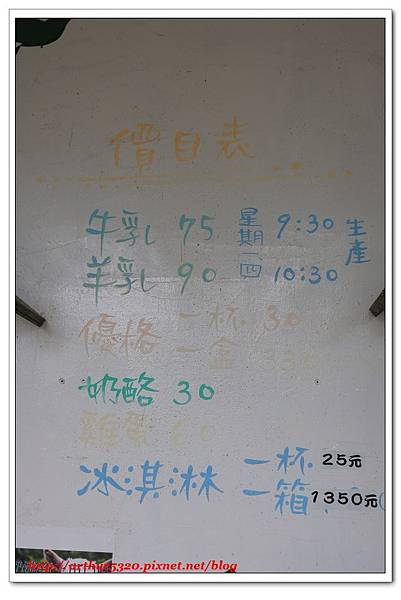 價目表
牛乳 75 星期一四 9:30 生產
羊乳 90 10:30
優格 一杯 30
一盒
奶酪 30
雞蛋 60
冰淇淋 一杯 25元
一箱 1350元
http://arthur5320.pixnet.net/blog